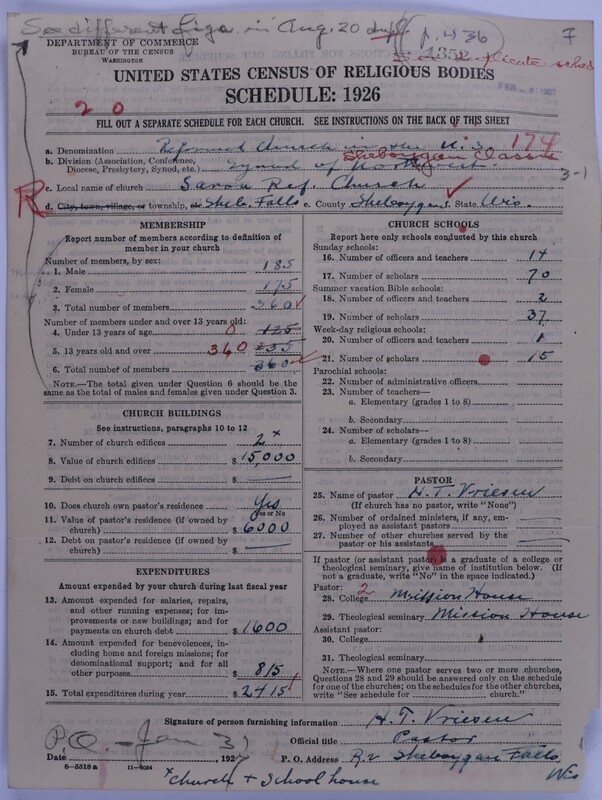 See different figs. in Aug. 20 dupl. p. W 36
7
DEPARTMENT OF COMMERCE
BUREAU OF THE CENSUS
WASHINGTON
1352
See duplicate sched
UNITED STATES CENSUS OF RELIGIOUS BODIES
SCHEDULE: 1926
2 0
FILL OUT A SEPARATE SCHEDULE FOR EACH CHURCH. SEE INSTRUCTIONS ON THE BACK OF THIS SHEET
a. Denomination Reformed Church in the U.S. 174
b. Division (Association, Conference, Diocese, Presbytery, Synod, etc.) Synod of Northwest. Sheboygan Classis
3-1
R
c. Local name of church Saron Ref. Church
d. City, town, village, or township, etc. Sheb. Falls e. County Sheboygan f. State Wis.
MEMBERSHIP
Report number of members according to definition of
member in your church
Number of members, by sex:
1. Male 185
2. Female 175
3. Total number of members 360
Number of members under and over 13 years old:
4. Under 13 years of age 0 125
5. 13 years old and over 360 235
6. Total number of members 360
NOTE.—The total given under Question 6 should be the
same as the total of males and females given under Question 3.
CHURCH BUILDINGS
See instructions, paragraphs 10 to 12
7. Number of church edifices 2 x
8. Value of church edifices $ 15,000
9. Debt on church edifices $ —
10. Does church own pastor's residence? Yes
(Yes or No)
11. Value of pastor's residence (if owned by
church) $ 6000
12. Debt on pastor's residence (if owned by
church) $ —
EXPENDITURES
Amount expended by your church during last fiscal year
13. Amount expended for salaries, repairs,
and other running expenses; for im-
provements or new buildings; and for
payments on church debt $ 1600
14. Amount expended for benevolences,
including home and foreign missions; for
denominational support; and for all
other purposes $ 815
15. Total expenditures during year $ 2415
CHURCH SCHOOLS
Report here only schools conducted by this church
Sunday schools:
16. Number of officers and teachers 14
17. Number of scholars 70
Summer vacation Bible schools:
18. Number of officers and teachers 2
19. Number of scholars 37
Week-day religious schools:
20. Number of officers and teachers 1
21. Number of scholars 15
Parochial schools:
22. Number of administrative officers
23. Number of teachers—
a. Elementary (grades 1 to 8)
b. Secondary
24. Number of scholars—
a. Elementary (grades 1 to 8)
b. Secondary
PASTOR
25. Name of pastor H. T. Vriesen
(If church has no pastor, write "None")
26. Number of ordained ministers, if any, em-
ployed as assistant pastors —
27. Number of other churches served by the
pastor or his assistants —
If pastor (or assistant pastor) is a graduate of a college or
theological seminary, give name of institution below. (If
not a graduate, write "No" in the space indicated.)
Pastor:
28. College 2 Mission House
29. Theological seminary Mission House
Assistant pastor:
30. College
31. Theological seminary
NOTE.—Where one pastor serves two or more churches,
Questions 28 and 29 should be answered only on the schedule
for one of the churches; on the schedules for the other churches,
write "See schedule for church."
Signature of person furnishing information H. T. Vriesen
Official title Pastor
P.O. - Jan 3
Date , 1927 P. O. Address R2 Sheboygan Falls
Wis
6—5518 a 11—9024
x Church + School house